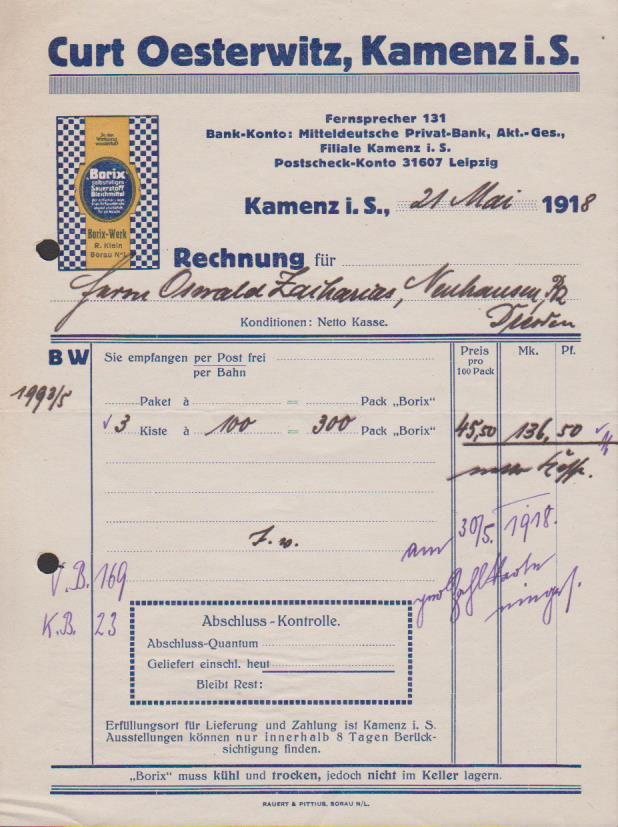 Curt Oesterwitz, Kamenz i. S.
Fernsprecher 131
Bank-Konto: Mitteldeutsche Privat-Bank, Akt.-Ges.,
Filiale Kamenz i. S.
Postscheck-Konto 31607 Leipzig
In der Wirkung wundervoll!
Borix
selbsttätiges
Sauerstoff
Bleichmittel
Borix-Werk
R. Klein
Sorau N/L
Kamenz i. S., 21 Mai 1918
Rechnung für
Herrn Oswald Zacharias, Neuhausen,
Dresden
Konditionen: Netto Kasse.
BW
Sie empfangen per Post frei
per Bahn
Preis pro 100 Pack
Mk. Pf.
1993/5
Paket à = Pack „Borix"
3 Kiste à 100 = 300 Pack „Borix" 45,50 136,50
am 30/5. 1918.
V.B. 169
K.B. 23
Abschluss - Kontrolle.
Abschluss-Quantum
Geliefert einschl. heut
Bleibt Rest:
Erfüllungsort für Lieferung und Zahlung ist Kamenz i. S.
Ausstellungen können nur innerhalb 8 Tagen Berück-
sichtigung finden.
„Borix" muss kühl und trocken, jedoch nicht im Keller lagern.
RAUERT & PITTIUS, SORAU N/L.